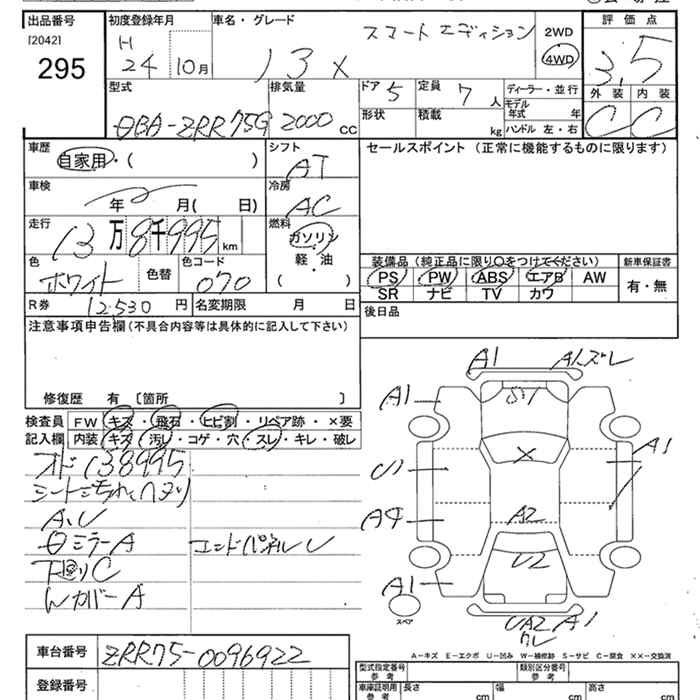 出品番号
[2042]
295
初度登録年月
H
24 10月
車名・グレード
スマートエディション
13 X
2WD
4WD
評価点
3.5
外装 内装
C C
型式
DBA-ZRR75G
排気量
2000 CC
ドア 5
定員 7 人
形状
積載 kg
ディーラー・並行
モデル年式 年
ハンドル 左・右
車歴
自家用・( )
シフト
AT
セールスポイント (正常に機能するものに限ります)
車検
年 月( 日)
冷房
AC
走行
13万8千995km
燃料
ガソリン
軽・油
( )
装備品 (純正品に限り○をつけてください)
新車保証書
色
ホワイト
色替
色コード
070
PS PW ABS エアB AW
SR ナビ TV カワ
有・無
R券 12.530 円
名変期限 月 日
後日品
注意事項申告欄 (不具合内容等は具体的に記入して下さい)
修復歴 有 〔箇所 〕
検査員
記入欄
FW キズ・飛石・ヒビ割・リペア跡・×要
内装 キズ・汚レ・コゲ・穴・スレ・キレ・破レ
オド138995
シートこ汚れ、ヘタリ
A、U
日ミラーA
エンドパネルU
下回りC
WカバーA
A1 A1ズレ
A1
A1
U1
X
A4
A2
U2
A1
スペア
UA2 A1
ワレ
A-キズ E-エクボ U-凹み W-補修跡 S-サビ C-腐食 ××-交換済
車台番号
ZRR75-0096922
登録番号
型式指定番号
参考
類別区分番号
参考
車庫証明用
参考
長さ cm
幅 cm
高さ cm